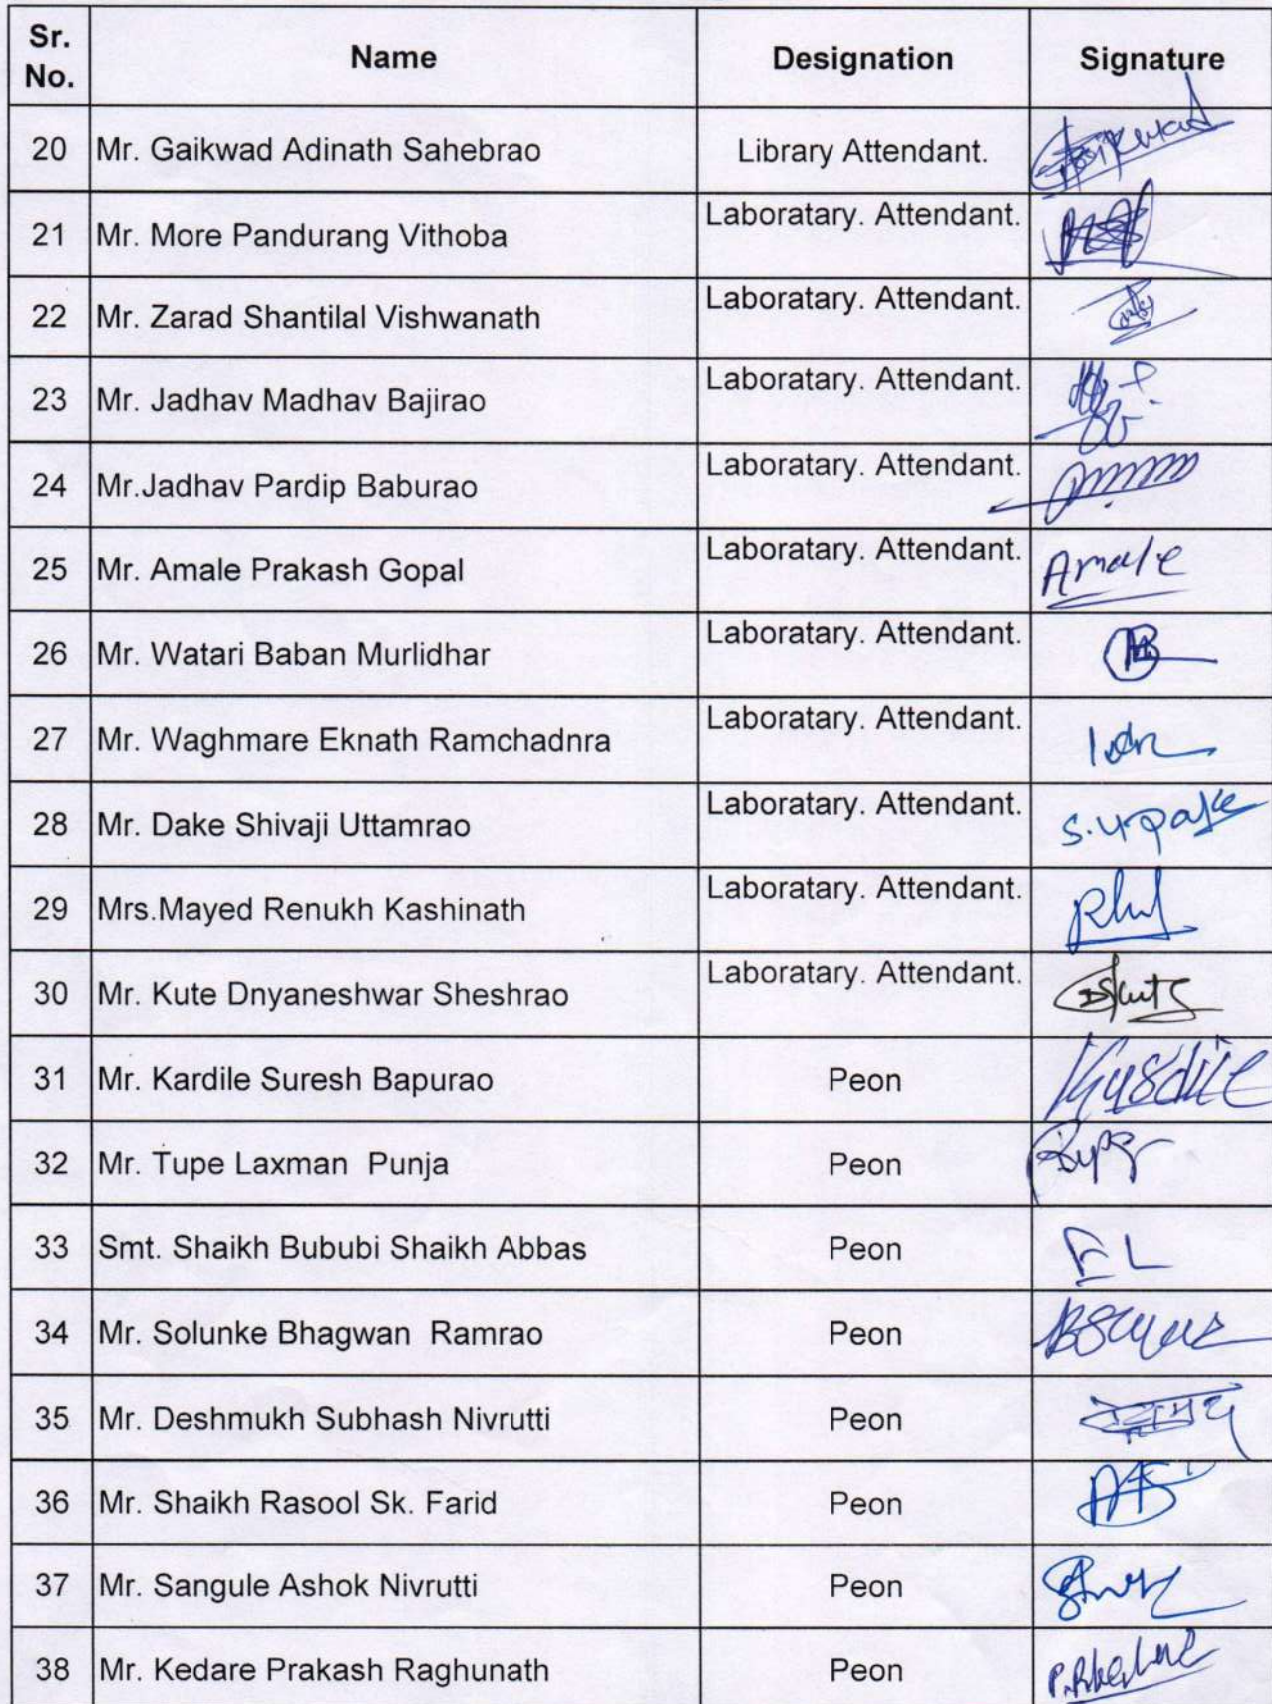 Sr. No. Name Designation Signature
20 Mr. Gaikwad Adinath Sahebrao Library Attendant.
21 Mr. More Pandurang Vithoba Laboratary. Attendant.
22 Mr. Zarad Shantilal Vishwanath Laboratary. Attendant.
23 Mr. Jadhav Madhav Bajirao Laboratary. Attendant.
24 Mr.Jadhav Pardip Baburao Laboratary. Attendant.
25 Mr. Amale Prakash Gopal Laboratary. Attendant. Amale
26 Mr. Watari Baban Murlidhar Laboratary. Attendant.
27 Mr. Waghmare Eknath Ramchadnra Laboratary. Attendant.
28 Mr. Dake Shivaji Uttamrao Laboratary. Attendant.
29 Mrs.Mayed Renukh Kashinath Laboratary. Attendant.
30 Mr. Kute Dnyaneshwar Sheshrao Laboratary. Attendant.
31 Mr. Kardile Suresh Bapurao Peon
32 Mr. Tupe Laxman Punja Peon
33 Smt. Shaikh Bububi Shaikh Abbas Peon
34 Mr. Solunke Bhagwan Ramrao Peon
35 Mr. Deshmukh Subhash Nivrutti Peon
36 Mr. Shaikh Rasool Sk. Farid Peon
37 Mr. Sangule Ashok Nivrutti Peon
38 Mr. Kedare Prakash Raghunath Peon